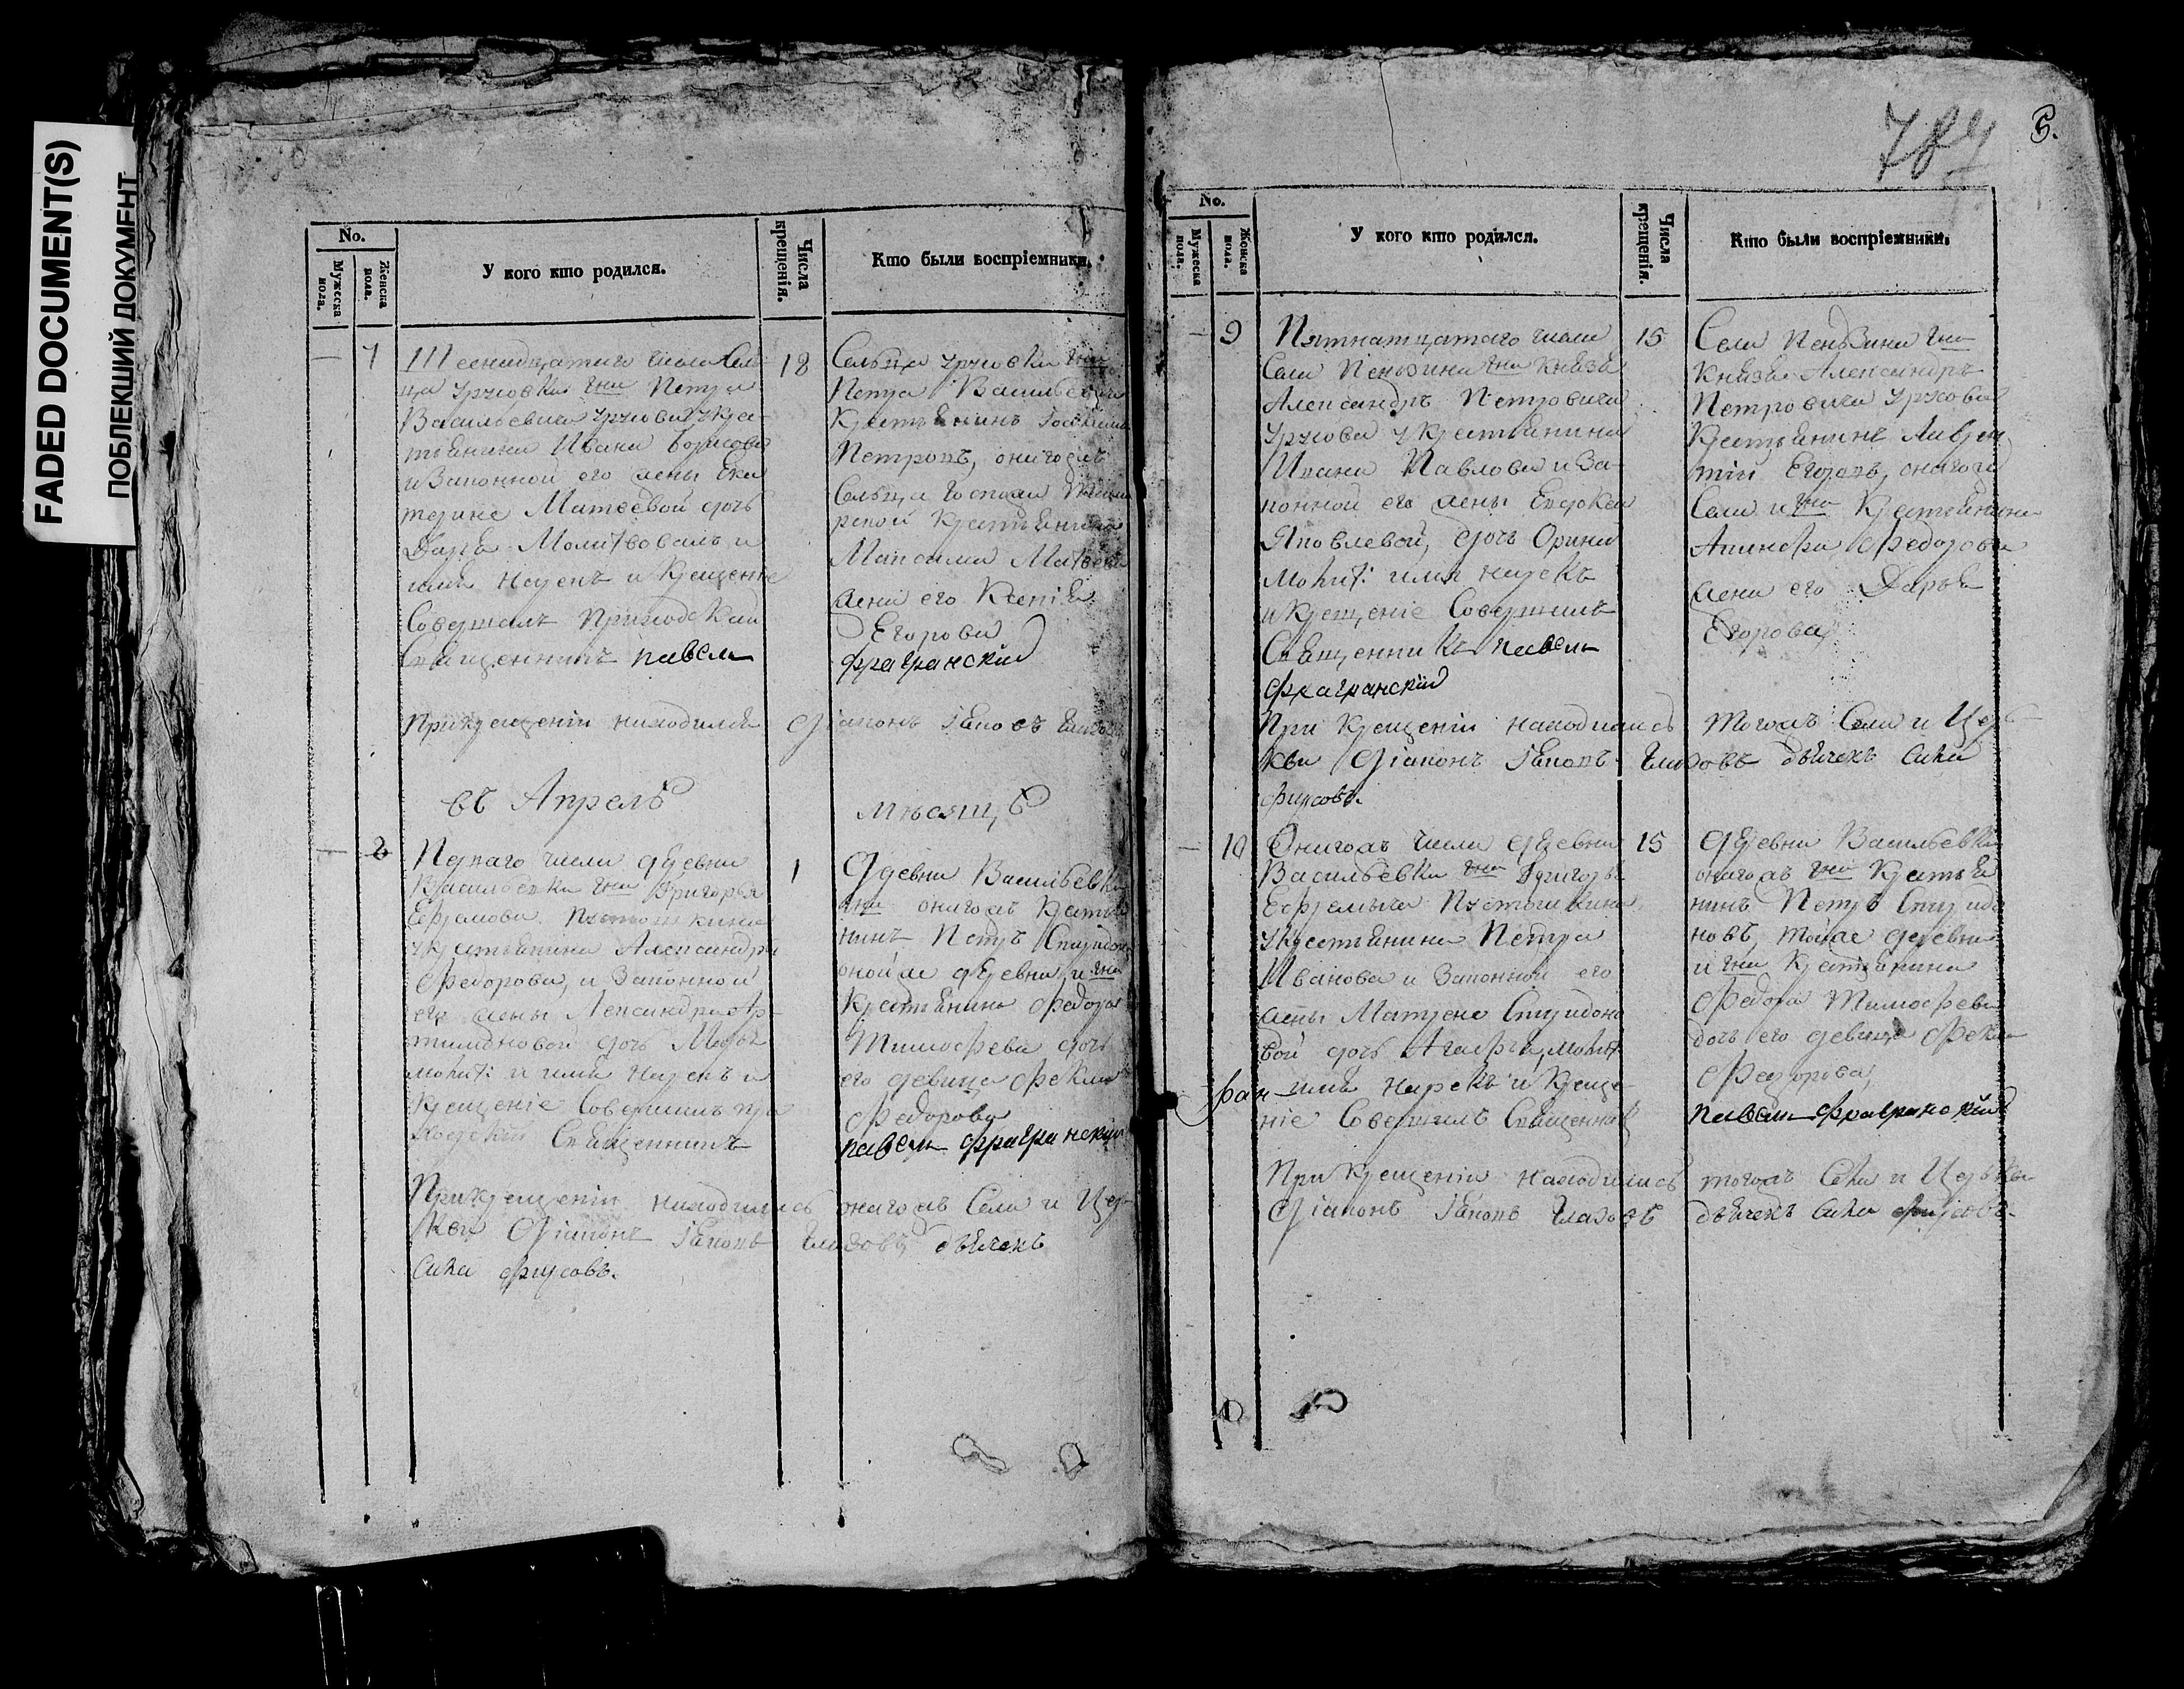 FADED DOCUMENT(S)
ПОБЛЕКШИЙ ДОКУМЕНТ
No.
Мужеска пола.
Женска пола.
У кого кто родился.
Числа крещенія.
Кто были воспріемники.
7
Шеснадцатаго числа Сель
ца Урусовки гна Петра
Васильевича Урусова у кре-
тьянина Ивана Борисова
и Законной его жены Ека
терине Матвевой дочь
Дарья Молитвовалъ и
имя нарекъ и крещеніе
Совершилъ Приходской
Священникъ павелъ
18
Сельца Урусовки гна
Петра Васильевича
Крестьянинъ
Петровъ, онагожъ
Сельца Госпожи
Крестьянина
Максима Матвева
жена его Ксенія
Егорова
фрагранскій
При крещеніи находился
Діаконъ Іаковъ Глазовъ
въ Апрелѣ
мѣсяцѣ
8
Перваго числа деревни
Васильевки гна Григорья
Ефремова Пустошкина
у крестьянина Александра
Федорова, и Законной
его жены Александры Ар-
тимоновой дочь Марья
молит: и имя нарекъ и
крещеніе Совершилъ при
ходскій Священникъ
1
Деревни Васильевки
гна онагожъ крестья
нинъ Петръ Спиридоно
оной же деревни и гна
Крестьянина Федора
Тимофева дочь
его девица Фекла
Федорова
павелъ фрагранскій
При крещеніи находились онагожъ Села и Цер-
кви Діаконъ Іаковъ Глазовъ, дьячекъ
Сила фирсовъ.
787
5.
No.
Мужеска пола.
Женска пола.
У кого кто родился.
Числа крещенія.
Кто были воспріемники.
9
Пятнатцатаго числа
Села Пензина гна Князя
Александръ Петровича
Урусова у крестьянина
Ивана Павлова и За-
конной его жены Евдокеи
Яковлевой, дочь Орина
молит: имя нарекъ
и крещеніе Совершилъ
Священникъ павелъ
фрагранскій
15
Села Пензина гна
Князя Александръ
Петровича Урусова
Крестьянинъ Лаврен
тій Егоровъ, онагожъ
Села и гна Крестьянина
Федорова
жена его Дарья
Егорова,
При крещеніи находились тогожъ Села и Цер-
кви Діаконъ Іаковъ Глазовъ дьячекъ Сила
фирсовъ.
10
Онагожъ числа деревни
Васильевки гна Григорья
Ефремыча Пустошкина
у крестьянина Петра
Иванова и Законной его
жены Матрене Спиридоно
вой дочь Агафья, молит
имя нарекъ и креще-
ніе Совершилъ Священникъ
15
Деревни Васильевки
онагожъ гна Крестья
нинъ Петръ Спиридо
новъ, тойже деревни
и гна Крестьянина
Федора Тимофева
дочь его девица Фекла
Федорова,
павелъ фрагранскій
При крещеніи находились тогожъ Села и Церькви
Діаконъ Іаковъ Глазовъ дьячекъ Сила фирсовъ.